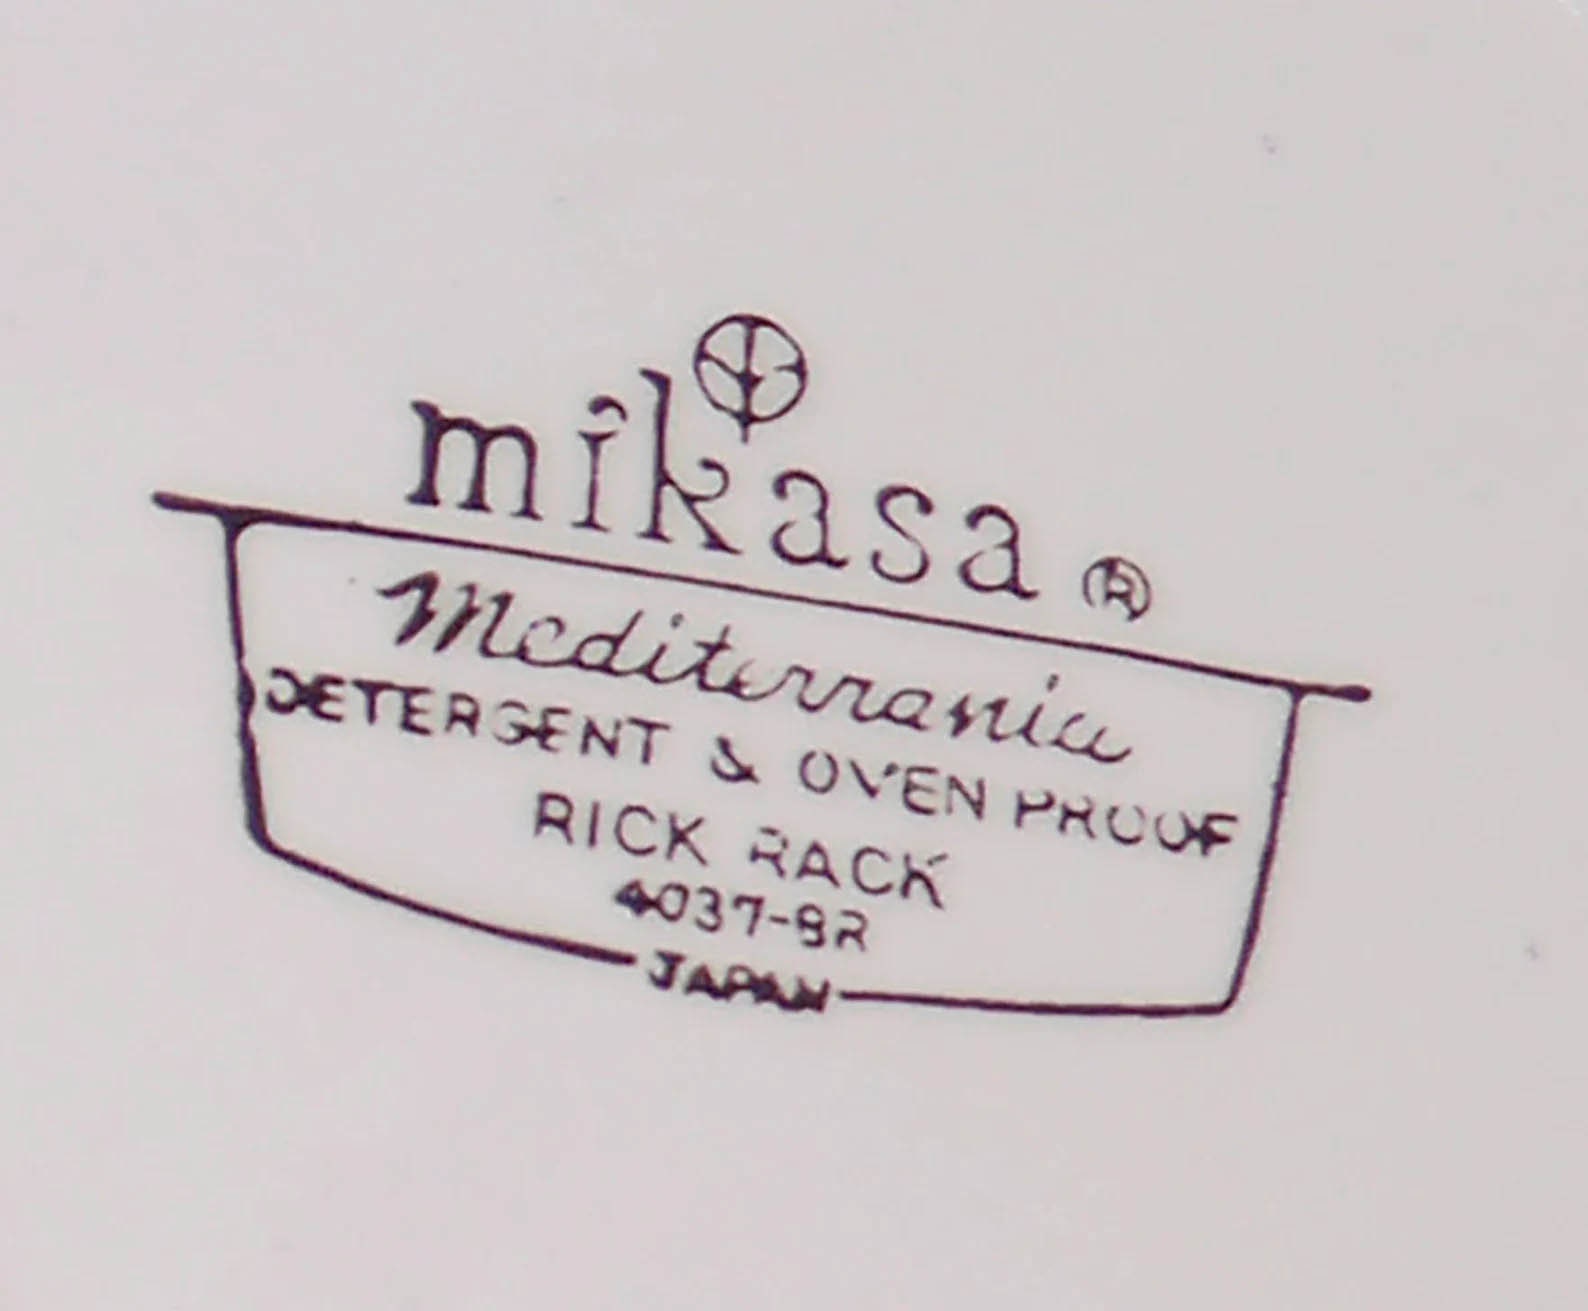 mikasa ®
Mediterrania
DETERGENT & OVEN PROOF
RICK RACK
4037-82
JAPAN